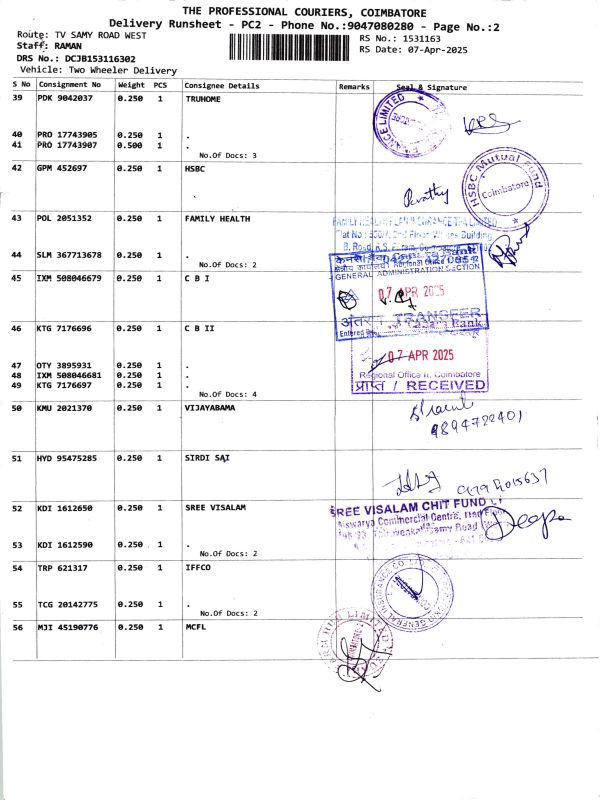 THE PROFESSIONAL COURIERS, COIMBATORE
Delivery Runsheet - PC2 - Phone No.:9047080280 - Page No.:2
Route: TV SAMY ROAD WEST
RS No.: 1531163
Staff: RAMAN
RS Date: 07-Apr-2025
DRS No.: DCJB153116302
Vehicle: Two Wheeler Delivery
S No Consignment No Weight PCS Consignee Details Remarks Seal & Signature
39 PDK 9042037 0.250 1 TRUHOME
40 PRO 17743905 0.250 1 .
41 PRO 17743907 0.500 1 .
No.Of Docs: 3
42 GPM 452697 0.250 1 HSBC
HSBC Mutual Fund
Coimbatore
43 POL 2051352 0.250 1 FAMILY HEALTH
44 SLM 367713678 0.250 1 .
No.Of Docs: 2
45 IXM 508046679 0.250 1 C B I
GENERAL ADMINISTRATION SECTION
07 APR 2025
TRANSFER
46 KTG 7176696 0.250 1 C B II
07 APR 2025
Regional Office II, Coimbatore
प्राप्त / RECEIVED
47 OTY 3895931 0.250 1 .
48 IXM 508046681 0.250 1 .
49 KTG 7176697 0.250 1 .
No.Of Docs: 4
50 KMU 2021370 0.250 1 VIJAYABAMA
9894722401
51 HYD 95475285 0.250 1 SIRDI SAI
52 KDI 1612650 0.250 1 SREE VISALAM
SREE VISALAM CHIT FUND
Aiswarya Commercial Centre,
Deepa
53 KDI 1612590 0.250 1 .
No.Of Docs: 2
54 TRP 621317 0.250 1 IFFCO
55 TCG 20142775 0.250 1 .
No.Of Docs: 2
56 MJI 45190776 0.250 1 MCFL